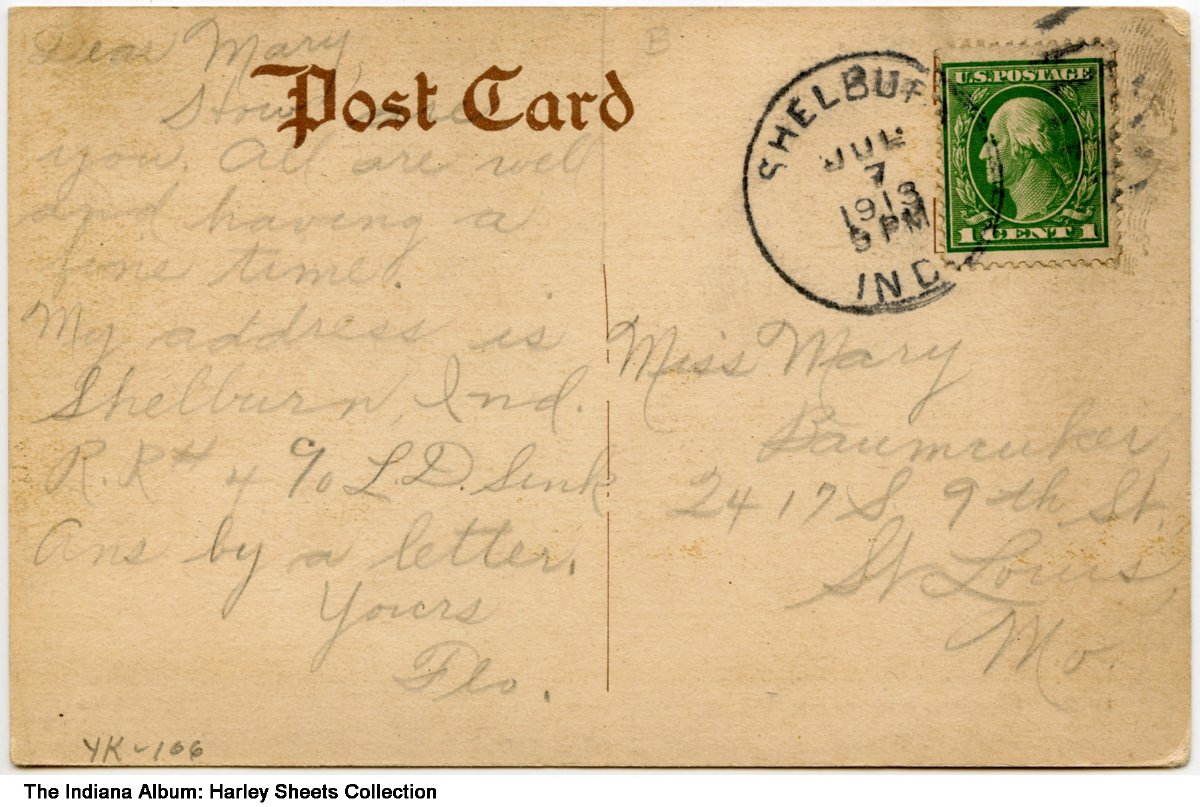 Post Card
Dear Mary,
How are
you. All are well
and having a
fine time.
My address is
Shelburn, Ind.
R.R# 4 % L.D. Sink
Ans by a letter.
Yours
Flo.
YK-106
B
SHELBUR
JUL
7
1913
5 PM
IND
U.S. POSTAGE
1 CENT 1
Miss Mary
Baumruker
2417 S. 9th St.
St Louis
Mo.
The Indiana Album: Harley Sheets Collection